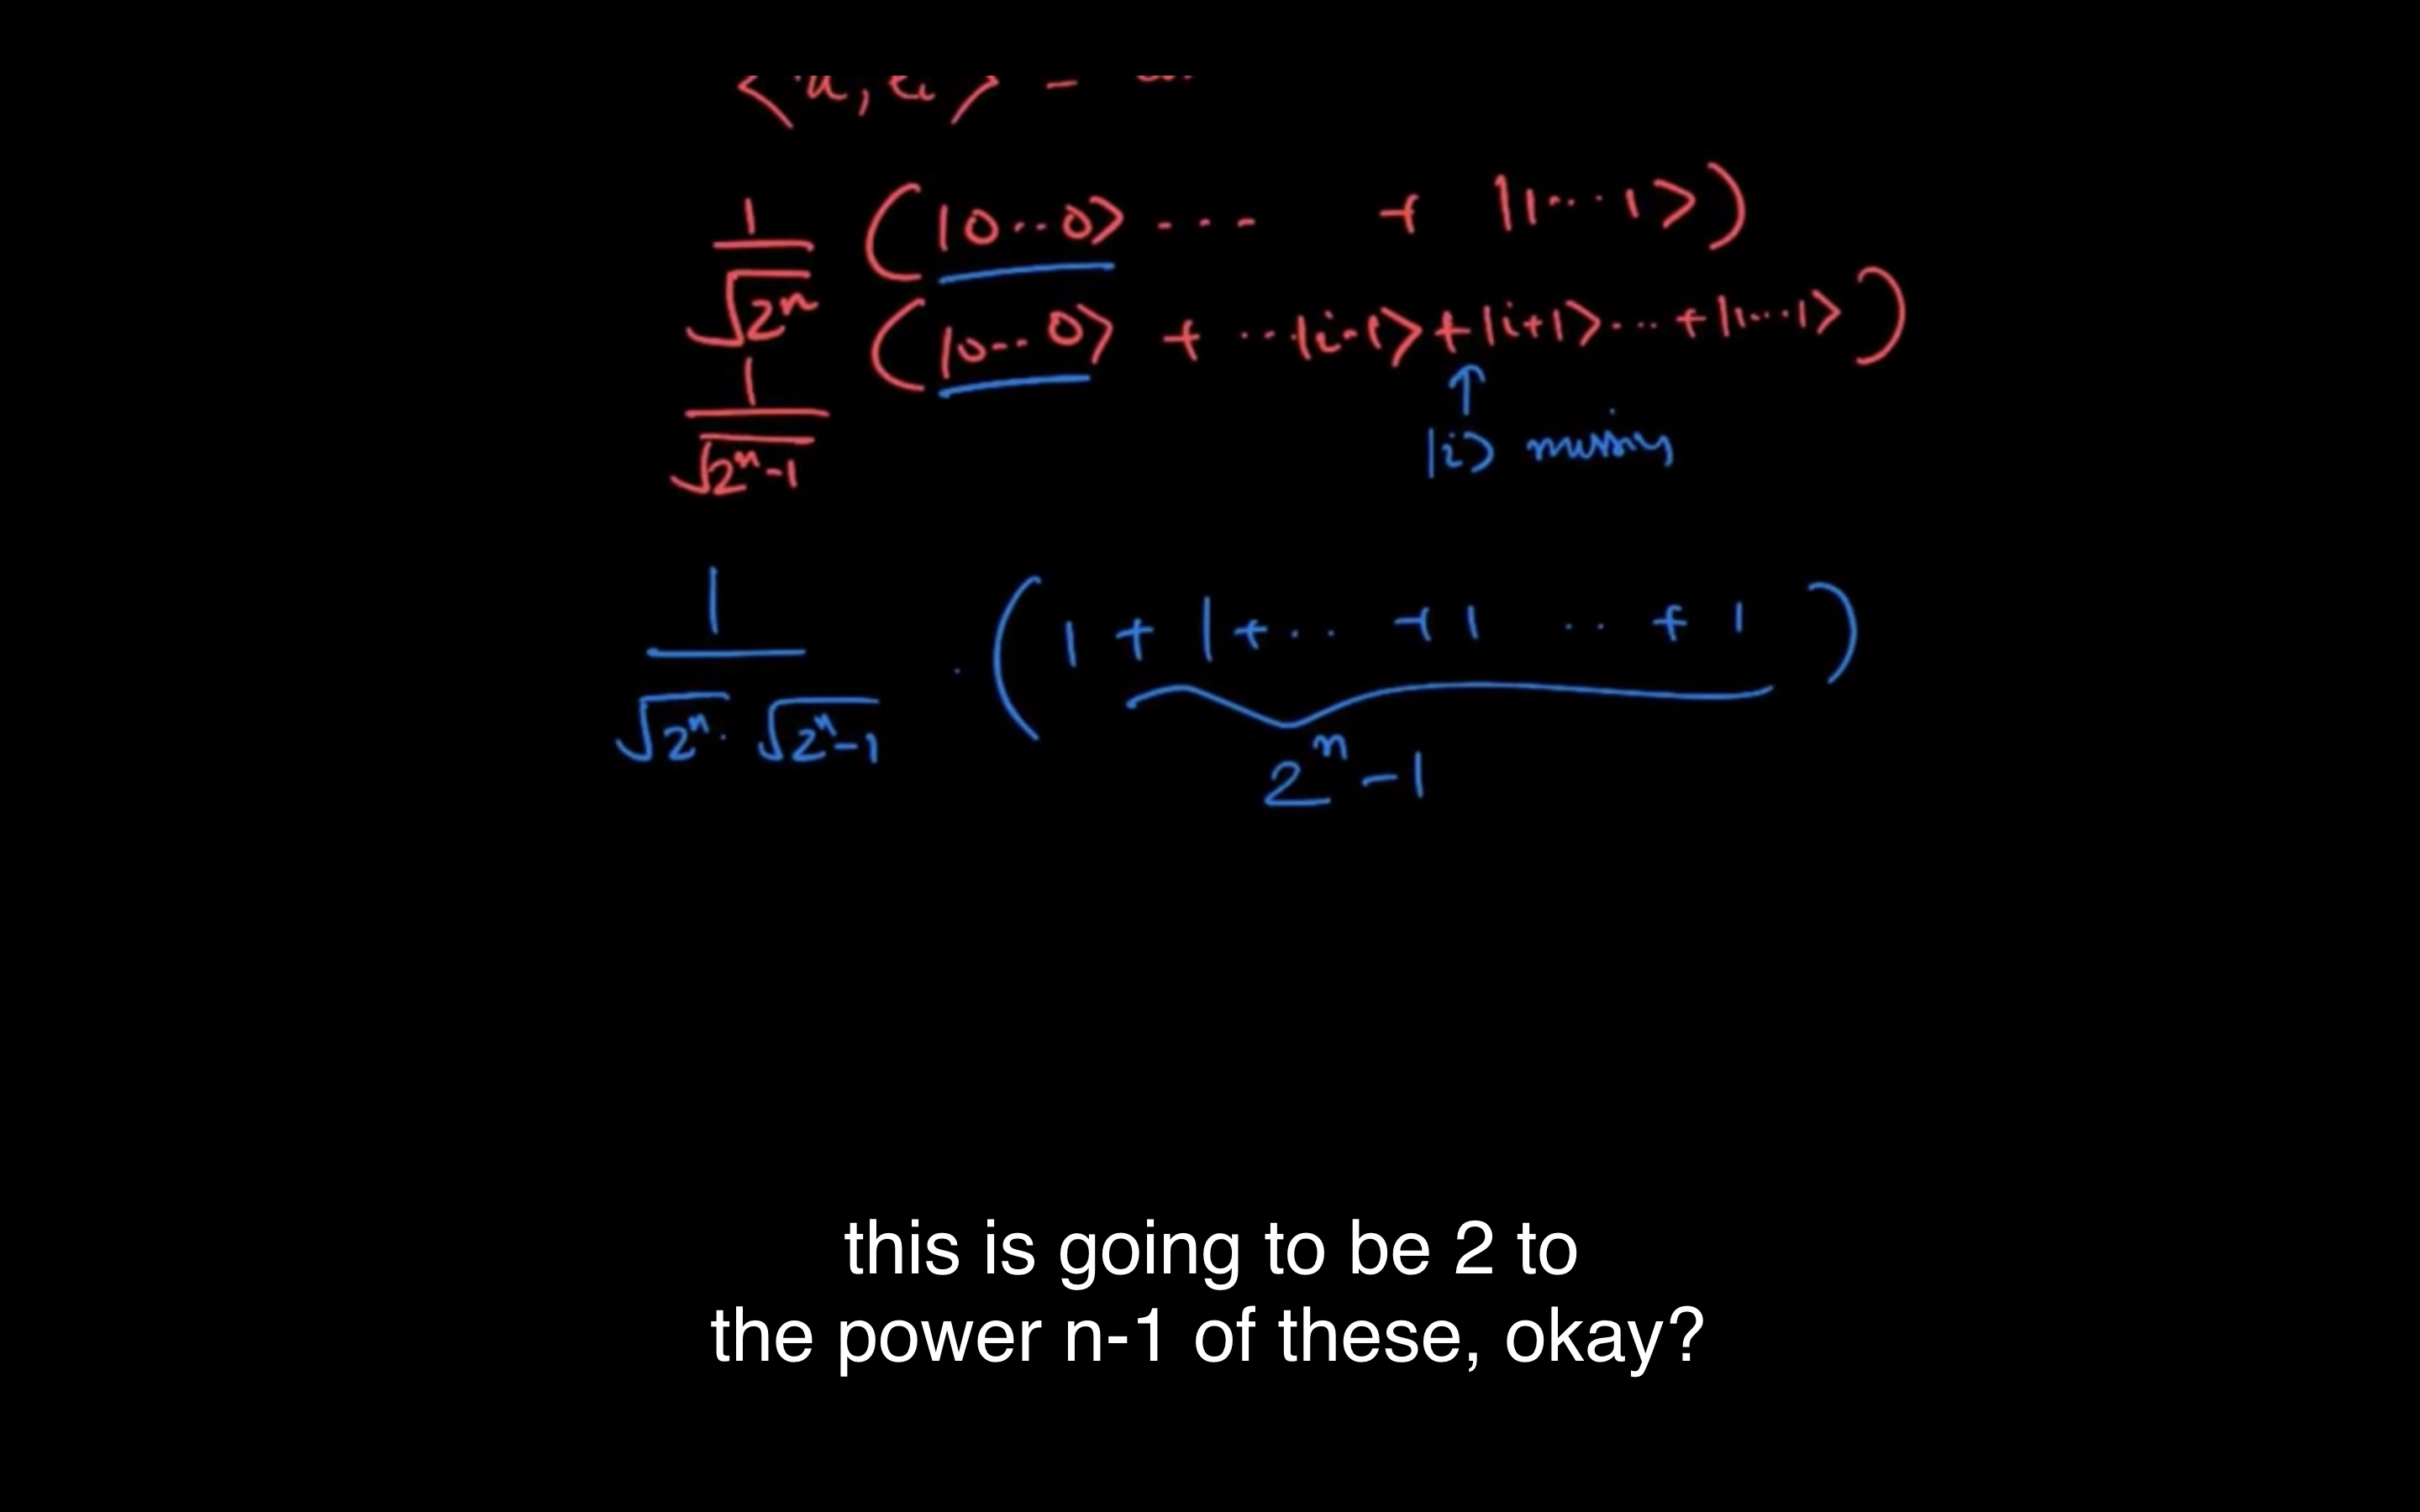 1/√2ⁿ (|0··0> ---- + |1···1>)
1/√2ⁿ-1 (|0---0> + ···|i-1> + |i+1>--- + |1···1>)
↑
|i> missing
1/√2ⁿ · √2ⁿ-1 · (1 + 1 + ·· + 1 ·· + 1)
2ⁿ-1
this is going to be 2 to
the power n-1 of these, okay?